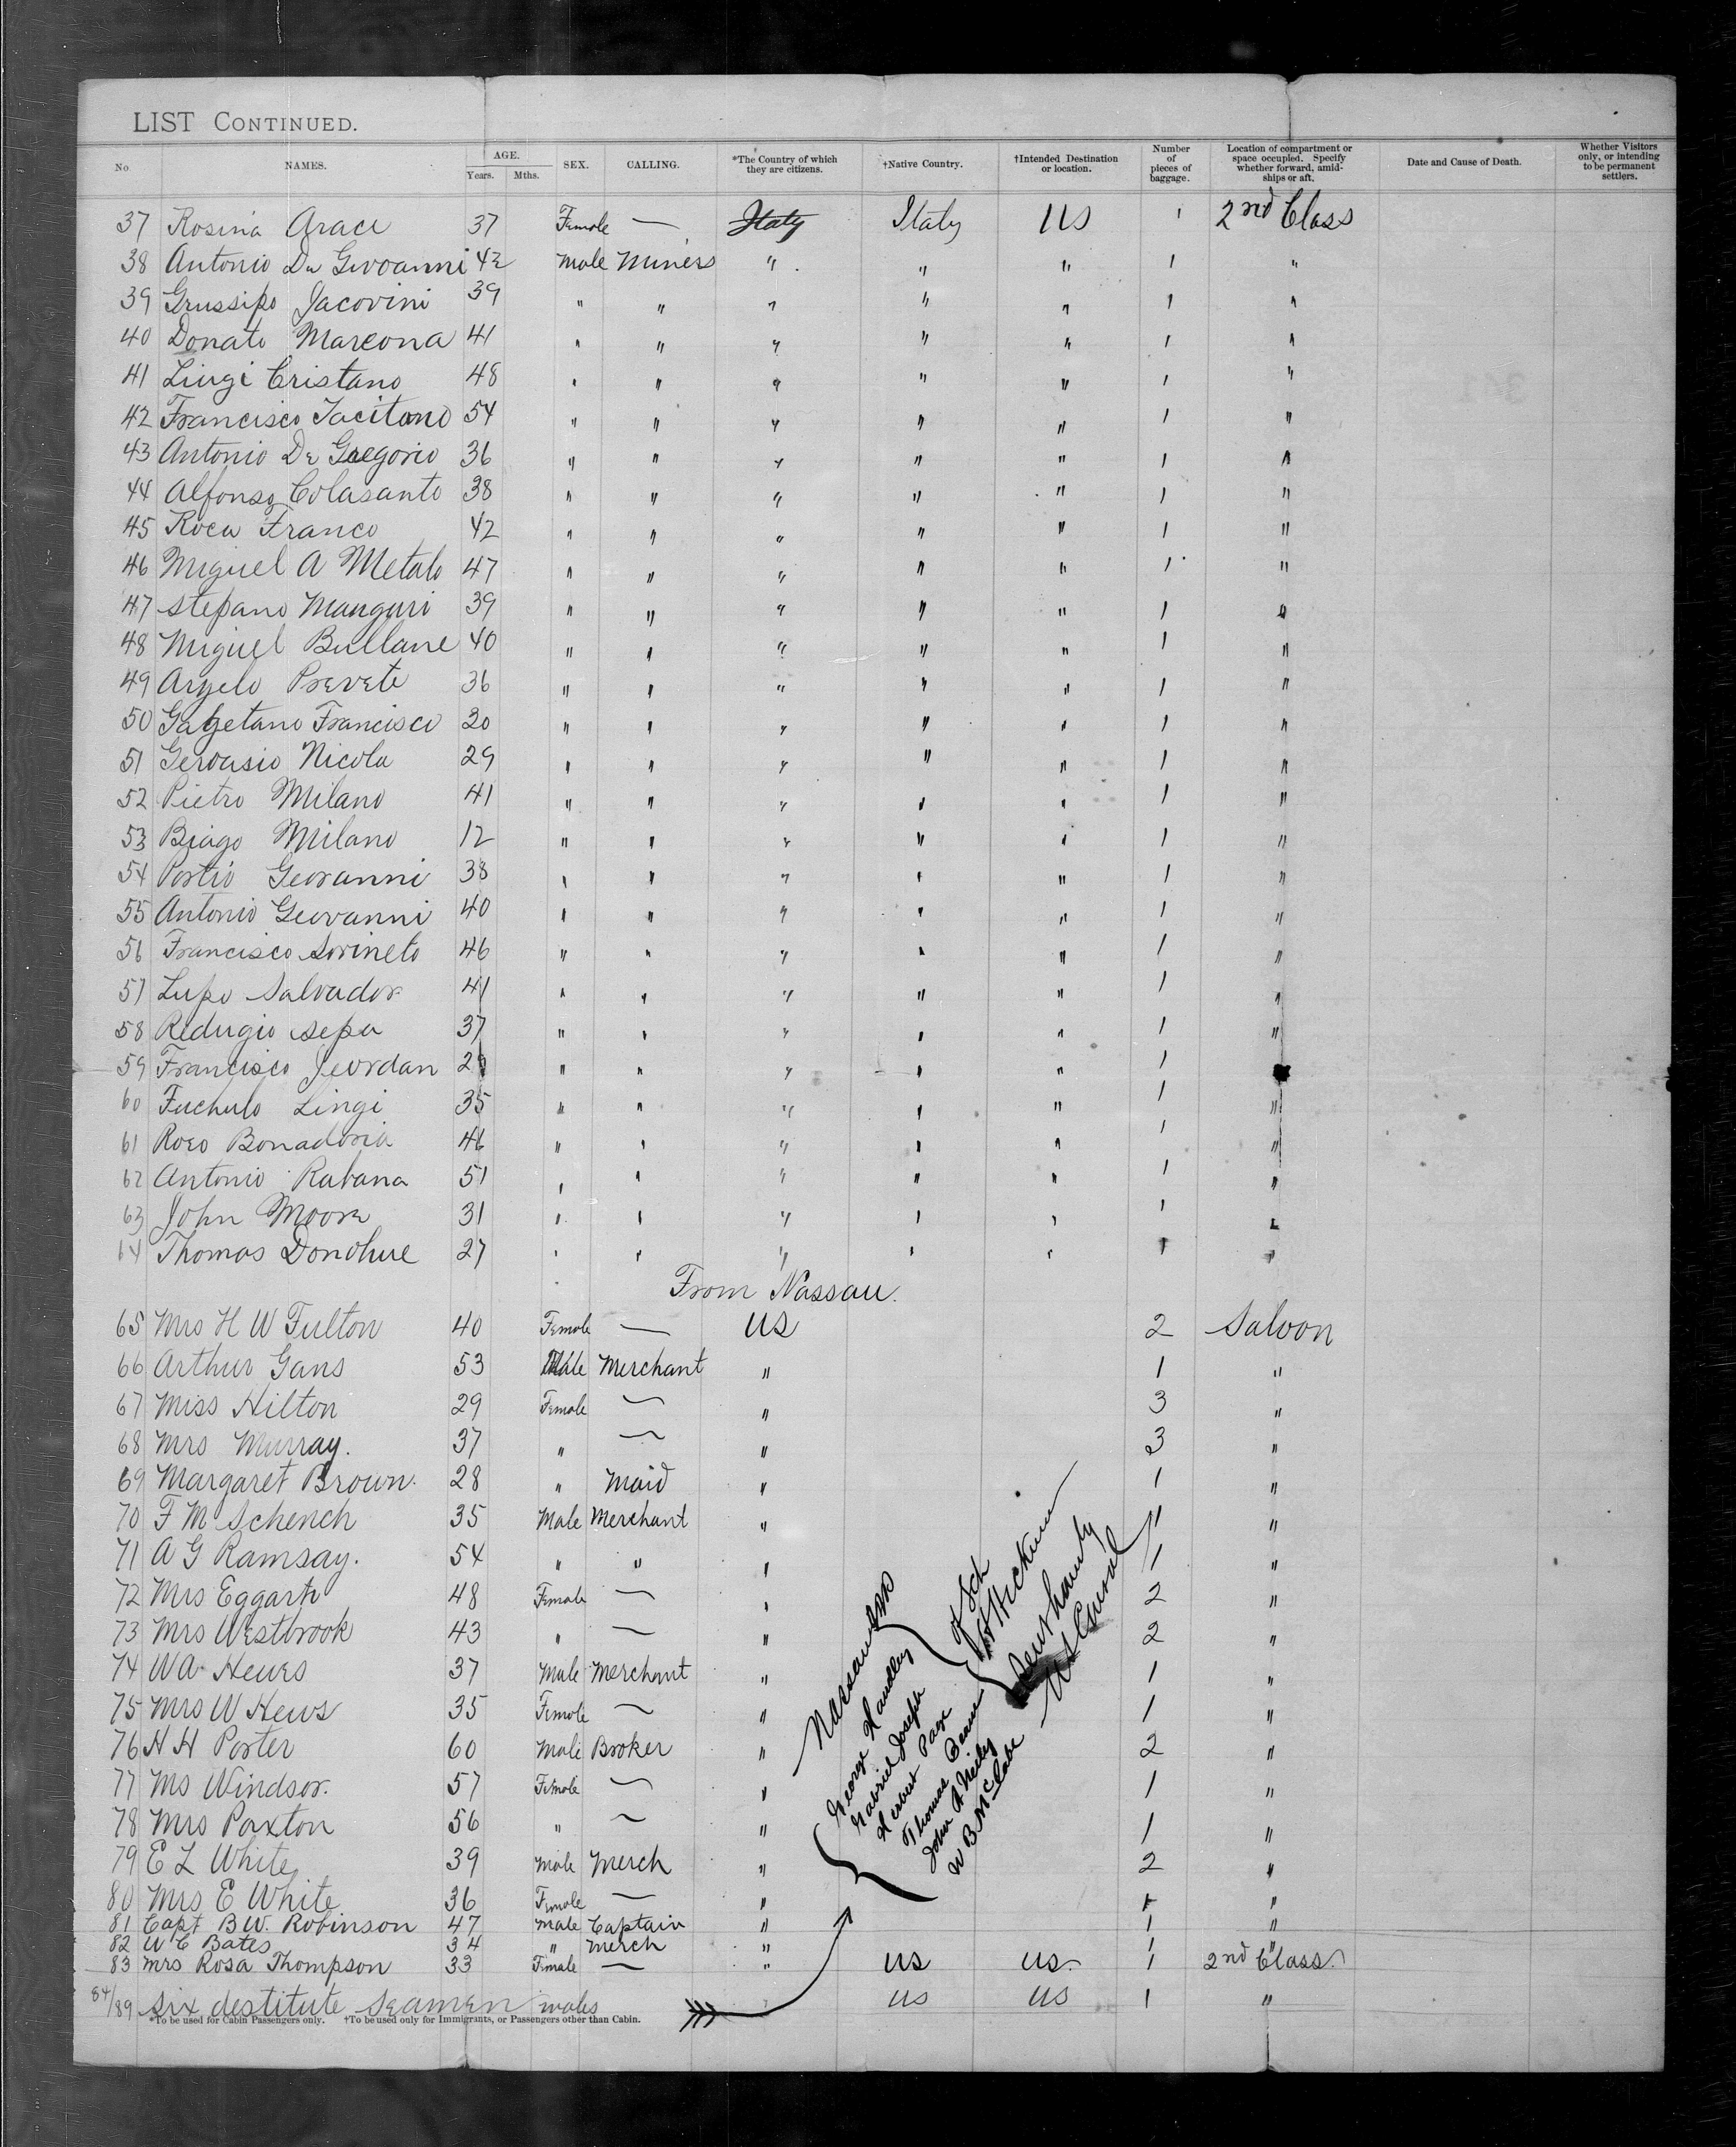 LIST CONTINUED.
No. NAMES. AGE. Years. Mths. SEX. CALLING. *The Country of which they are citizens. †Native Country. †Intended Destination or location. Number of pieces of baggage. Location of compartment or space occupied. Specify whether forward, amidships or aft. Date and Cause of Death. Whether Visitors only, or intending to be permanent settlers.
37 Rosina Grace 37 Female — Italy Italy US 1 2nd Class
38 Antonio De Geovanni 42 Male Miners " " " 1 "
39 Grussipo Jacovini 39 " " " " " 1 "
40 Donato Marcona 41 " " " " " 1 "
41 Liugi Cristano 48 " " " " " 1 "
42 Francisco Tacitano 54 " " " " " 1 "
43 Antonio De Gregorio 36 " " " " " 1 "
44 Alfonso Colasanto 38 " " " " " 1 "
45 Roca Franco 42 " " " " " 1 "
46 Miguel A Metalo 47 " " " " " 1 "
47 Stepano Manguri 39 " " " " " 1 "
48 Miguel Bullane 40 " " " " " 1 "
49 Argelo Prevete 36 " " " " " 1 "
50 Gagetano Francisco 20 " " " " " 1 "
51 Gervasio Nicola 29 " " " " " 1 "
52 Pietro Milano 41 " " " " " 1 "
53 Biago Milano 12 " " " " " 1 "
54 Portio Geovanni 38 " " " " " 1 "
55 Antonio Geovanni 40 " " " " " 1 "
56 Francisco Sorineto 46 " " " " " 1 "
57 Lupo Salvador 41 " " " " " 1 "
58 Redugio Sepa 37 " " " " " 1 "
59 Francisco Jeordan " " " " " 1
60 Fuchulo Lingi 35 " " " " " 1 "
61 Roco Bonadoria 46 " " " " " 1 "
62 Antonio Rabana 51 " " " " " 1 "
63 John Moore 31 " " " " " 1 "
64 Thomas Donohue 27 " " " " " 1 "
From Nassau.
65 Mrs H W Fulton 40 Female — US 2 Saloon
66 Arthur Gans 53 Male Merchant " 1 "
67 Miss Hilton 29 Female — " 3 "
68 Mrs Murray. 37 " — " 3 "
69 Margaret Brown. 28 " Maid " 1 "
70 F M Schench 35 Male Merchant " 1 "
71 A G Ramsay. 54 " " " 1 "
72 Mrs Eggart 48 Female — " 2 "
73 Mrs Westbrook 43 " — " 2 "
74 W A Hews 37 Male Merchant " 1 "
75 Mrs W Hews 35 Female — " 1 "
76 H H Porter 60 Male Broker " 2 "
77 Ms Windsor. 57 Female — " 1 "
78 Mrs Paxton 56 " — " 1 "
79 E L White 39 Male Merch " 2 "
80 Mrs E White 36 Female — " 1 "
81 Capt B W. Robinson 47 Male Captain " 1 "
82 W C Bates 34 " Merch " 1 "
83 Mrs Rosa Thompson 33 Female — " US US 1 2nd Class
84/89 Six destitute Seamen males US US 1 "
*To be used for Cabin Passengers only. †To be used only for Immigrants, or Passengers other than Cabin.
Nassau
George Handley
Gabriel Joseph
Herbert Page
Thomas
John A Neiley
W B McCabe
of Sch
Sent home by
US Consul